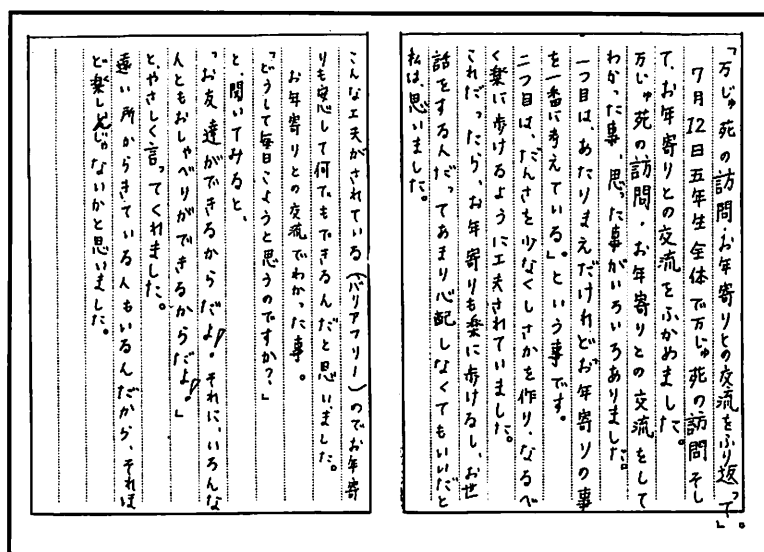 「万じゅ苑の訪問・お年寄りとの交流をふり返って」。
7月12日五年生全体で万じゅ苑の訪問そし
て、お年寄りとの交流をふかめました。
万じゅ苑の訪問・お年寄りとの交流をして
わかった事、思った事がいろいろありました。
一つ目は、あたりまえだけれど"お年寄りの事
を一番に考えている"。という事です。
二つ目は、だんさを少なくしさかを作り、なるべ
く楽に歩けるように工夫されていました。
これだったら、お年寄りも楽に歩けるし、お世
話をする人だってあまり心配しなくてもいいだと
私は、思いました。
こんな工夫がされている(バリアフリー)のでお年寄
りも安心して何でもできるんだと思いました。
お年寄りとの交流でわかった事。
「どうして毎日こようと思うのですか?」
と、聞いてみると、
「お友達ができるからだよ!。それに、いろんな
人ともおしゃべりができるからだよ!。」
と、やさしく言ってくれました。
遠い所からきている人もいるんだから、それほ
ど楽しんじゃないかと思いました。